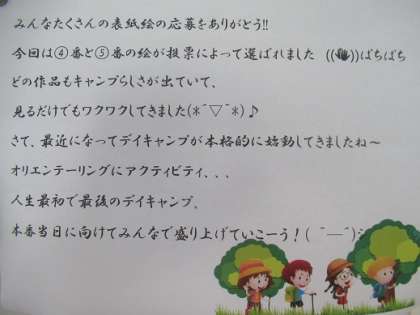 みんなたくさんの表紙絵の応募をありがとう!!
今回は④番と⑤番の絵が投票によって選ばれました　((👏))ぱちぱち
どの作品もキャンプらしさが出ていて、
見るだけでもワクワクしてきました(*^▽^*)♪
さて、最近になってデイキャンプが本格的に始動してきましたね~
オリエンテーリングにアクティビティ、、、
人生最初で最後のデイキャンプ。
本番当日に向けてみんなで盛り上げていこーう！( ｀―´)